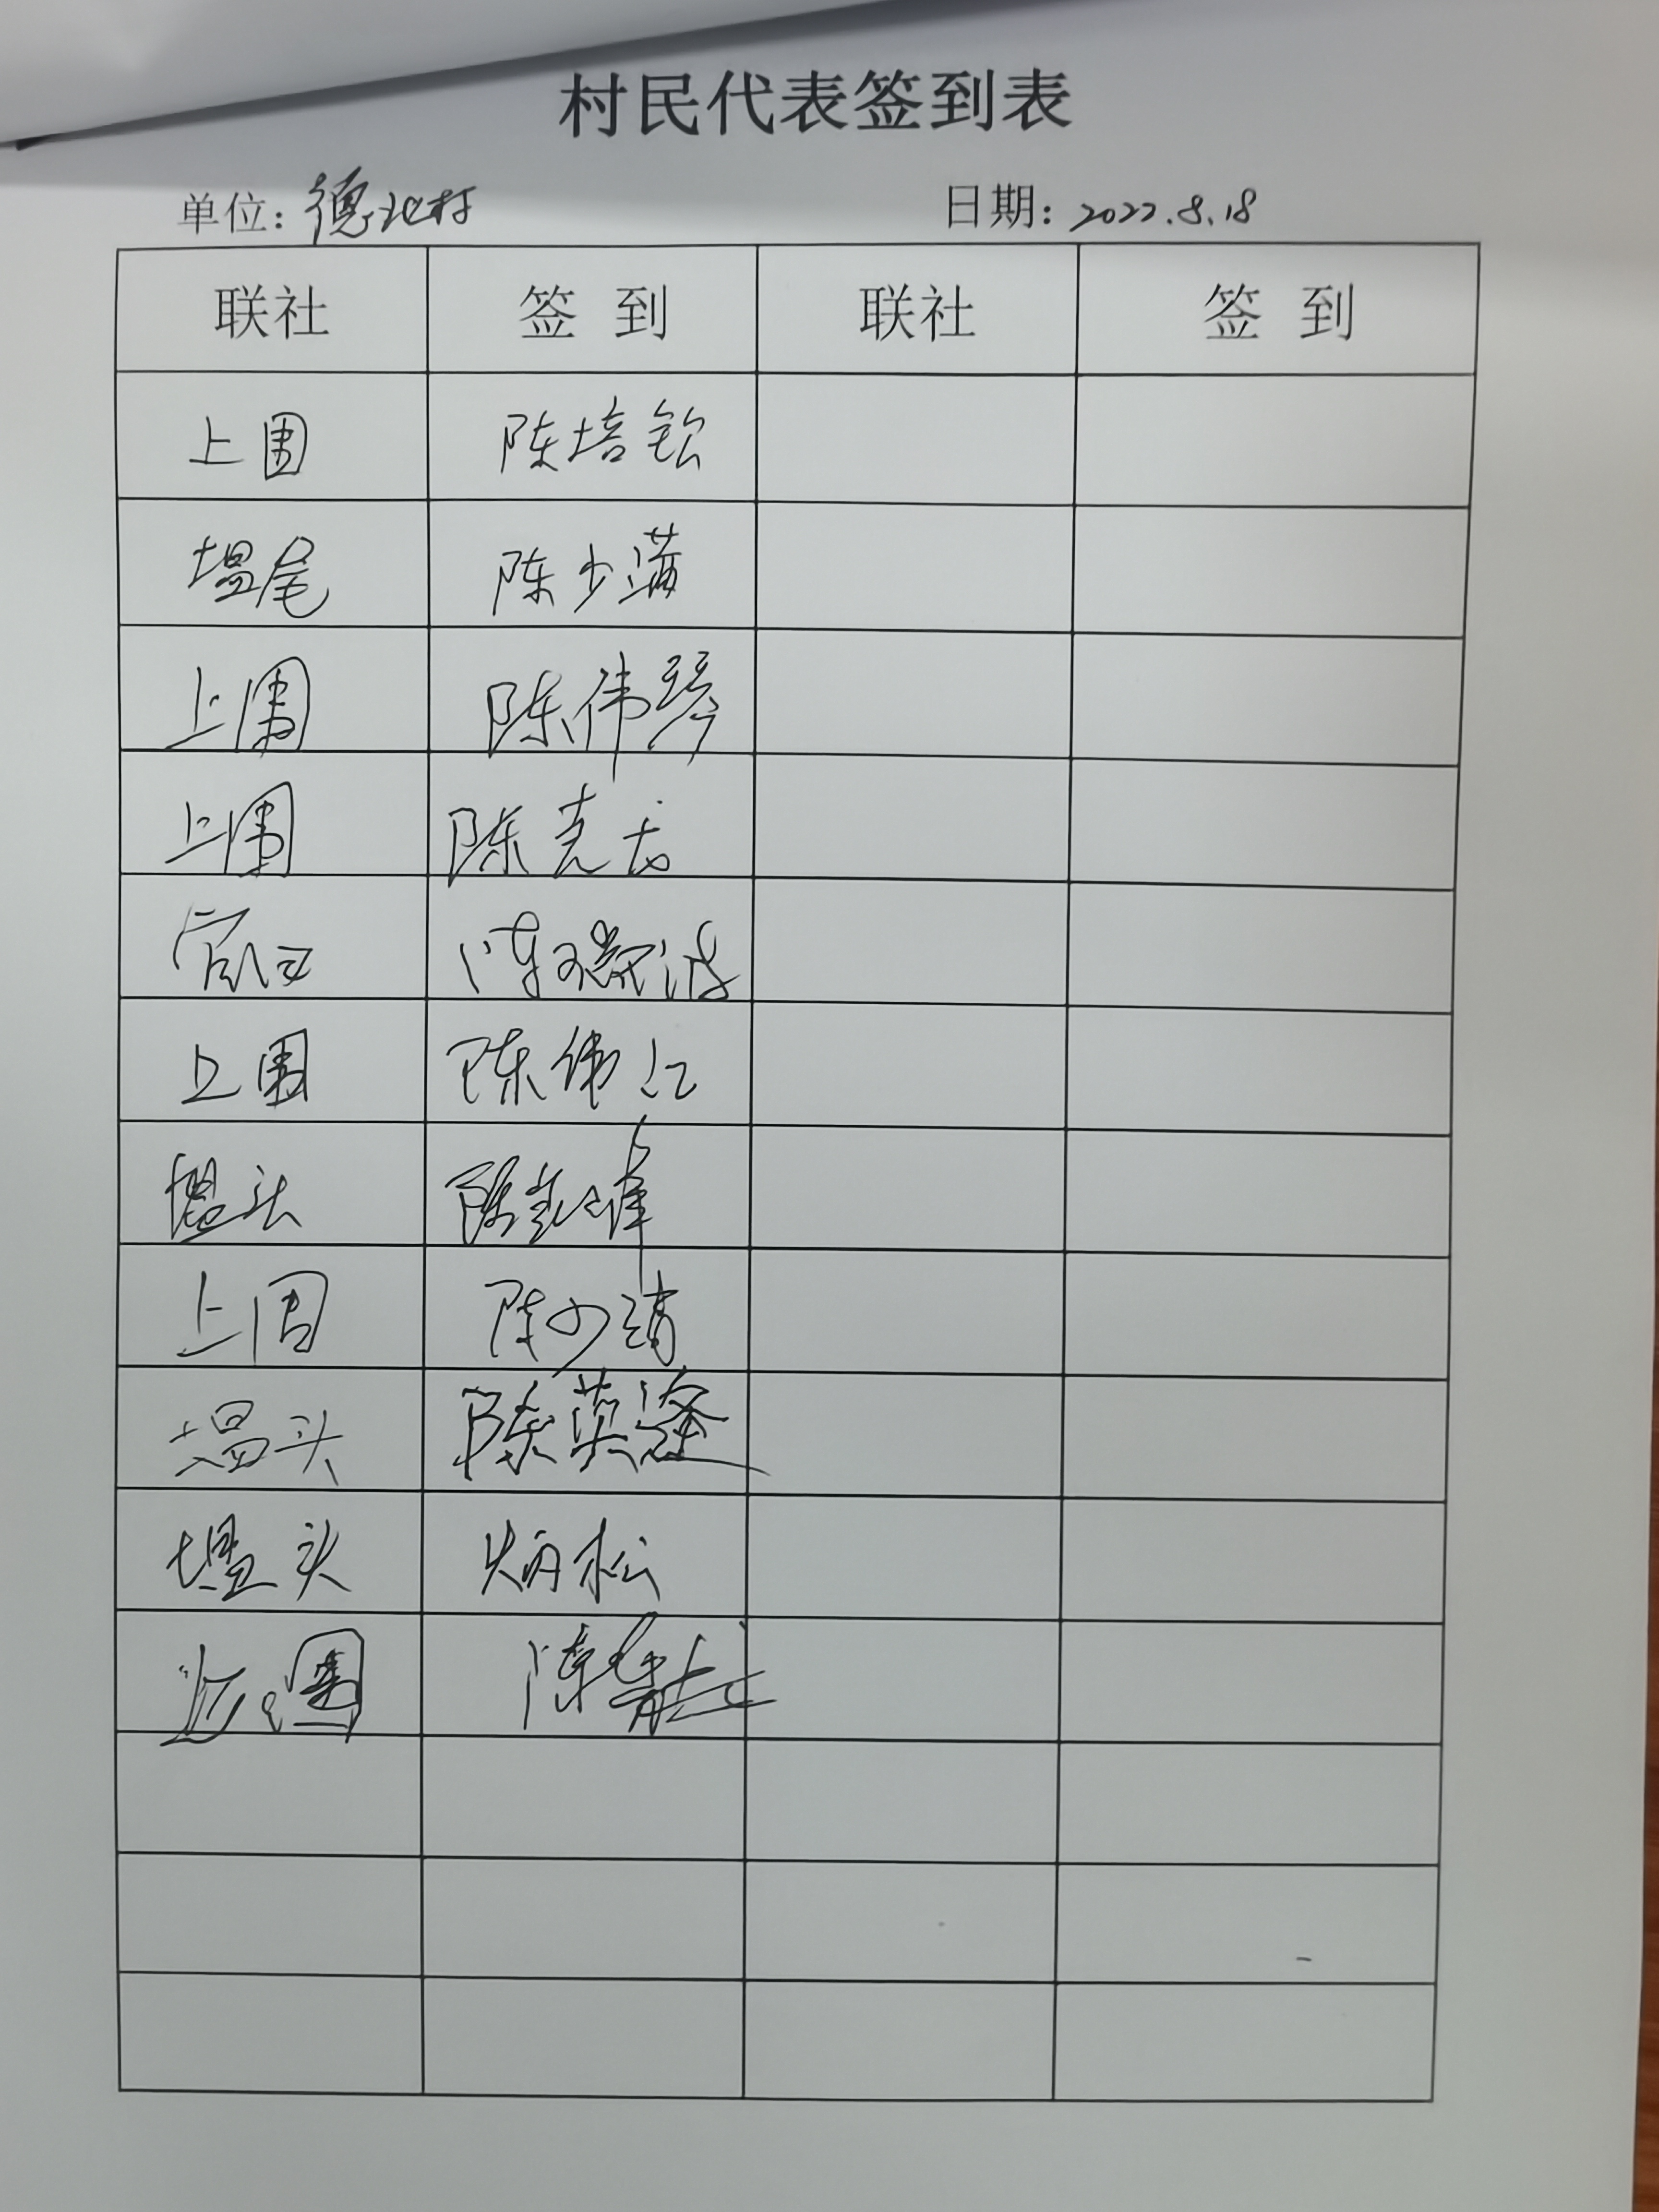 村民代表签到表
单位：德北村 日期：2022.8.18
联社 签到 联社 签到
上围 陈培钦
塭尾 陈少满
上围 陈伟琴
上围 陈克龙
陈瑞波
上围 陈伟江
塭头 陈
上围 陈少清
塭头 陈英逢
塭头 炳松
围 陈